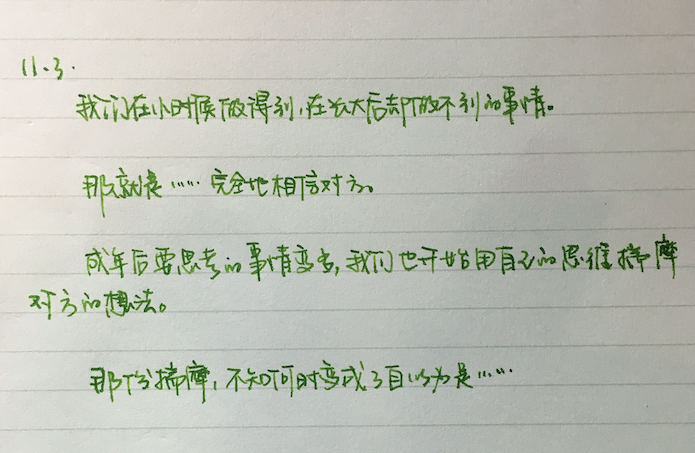 11.3.
我们在小时候做得到，在长大后却做不到的事情。
那就是……完全地相信对方。
成年后要思考的事情变多，我们也开始用自己的思维揣摩
对方的想法。
那份揣摩，不知何时变成了自以为是……